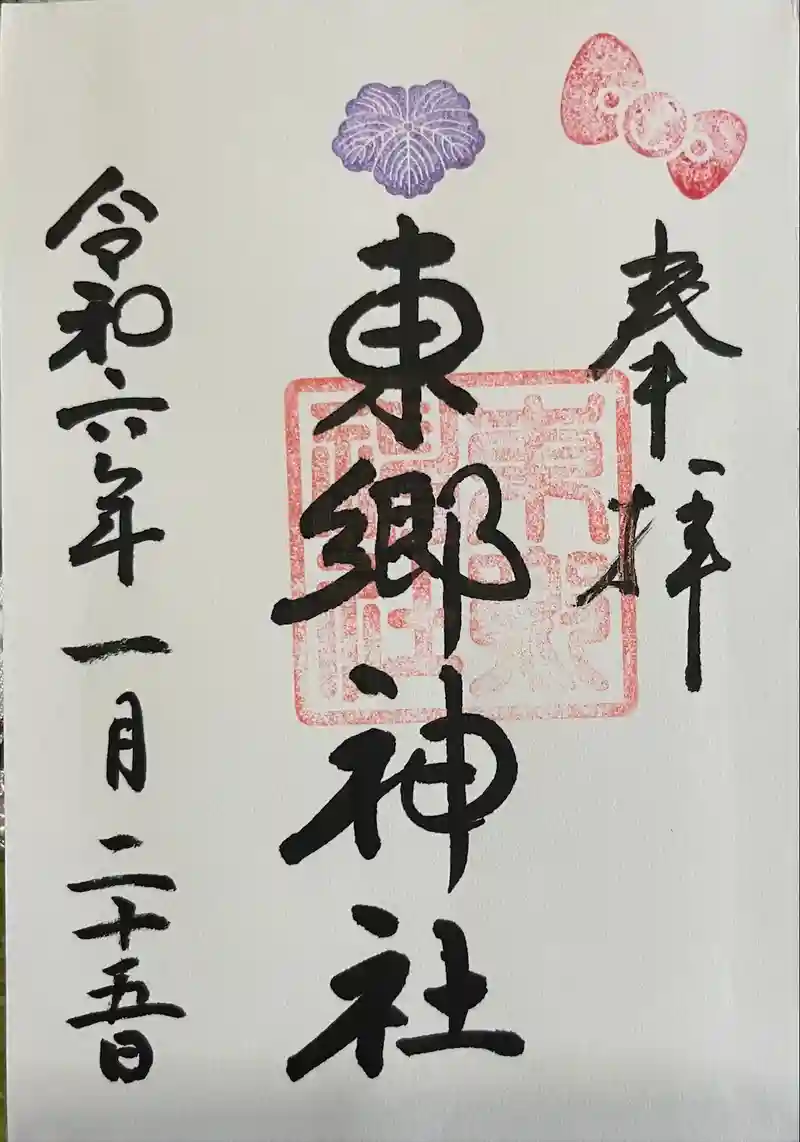 奉拝
東郷神社
東郷神社
令和六年一月二十五日